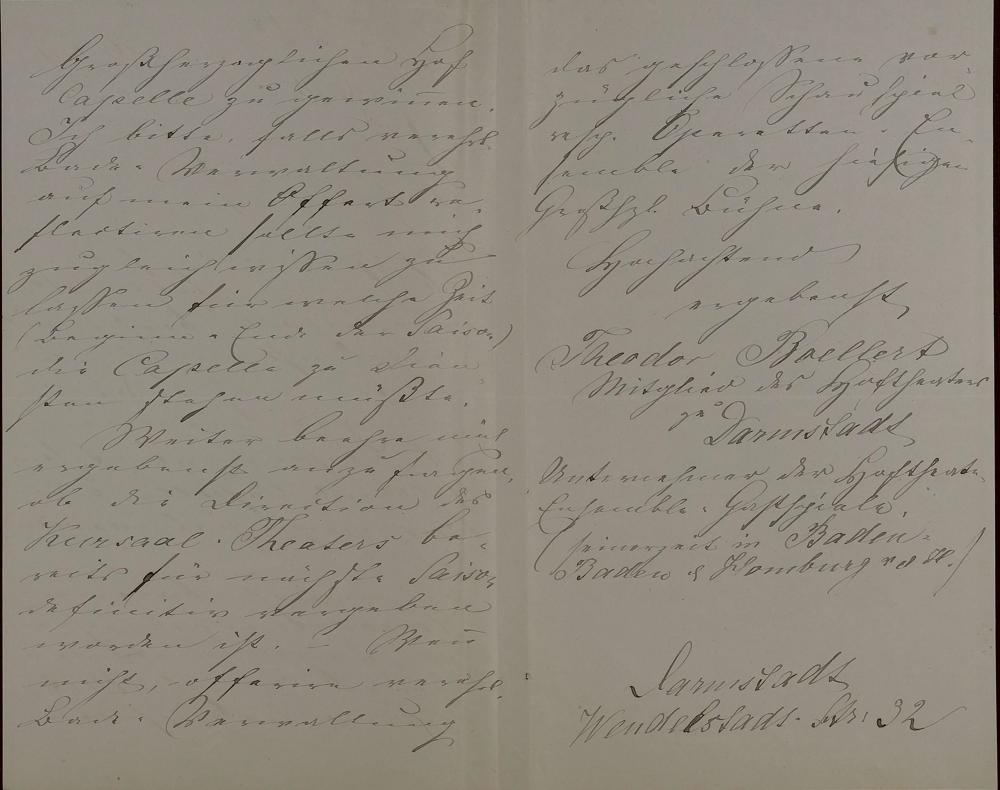 Großherzoglichen Hof
Capelle zu gewinnen.
Ich bitte, falls verehrl.
Bade-Verwaltung
auf mein Offert re-
flectiren sollte mich
zugleich wissen zu
lassen für welche Zeit
(Beginn u Ende der Saison)
die Capelle zu Dien-
sten stehen müßte.
Weiter beehre mich
ergebenst anzufragen,
ob die Direction des
Kursaal-Theaters be-
reits für nächste Saison
definitiv vergeben
worden ist. – Wenn
nicht, offerire verehrl.
Bade-Verwaltung
das geschlossene vor-
zügliche Schauspiel
resp. Operetten-En-
semble der hiesigen
Großhzl. Bühne.
Hochachtend
ergebenst
Theodor Boellert
Mitglied des Hoftheaters
zu Darmstadt
Unternehmer der Hoftheater
Ensemble-Gastspiele.
(seinerzeit in Baden-
Baden & Homburg v. d. H.)
Darmstadt
Wendelstadt-Str: 32